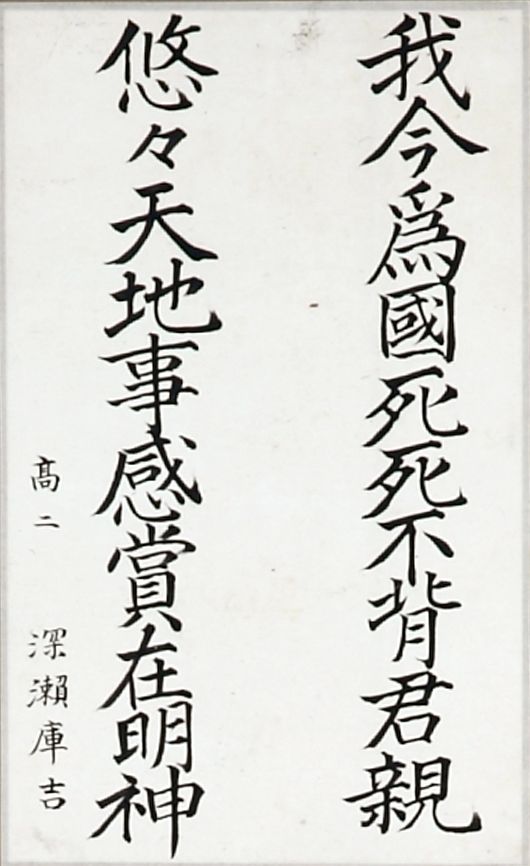 我今爲國死死不背君親
悠々天地事感賞在明神
髙二 深瀨庫吉